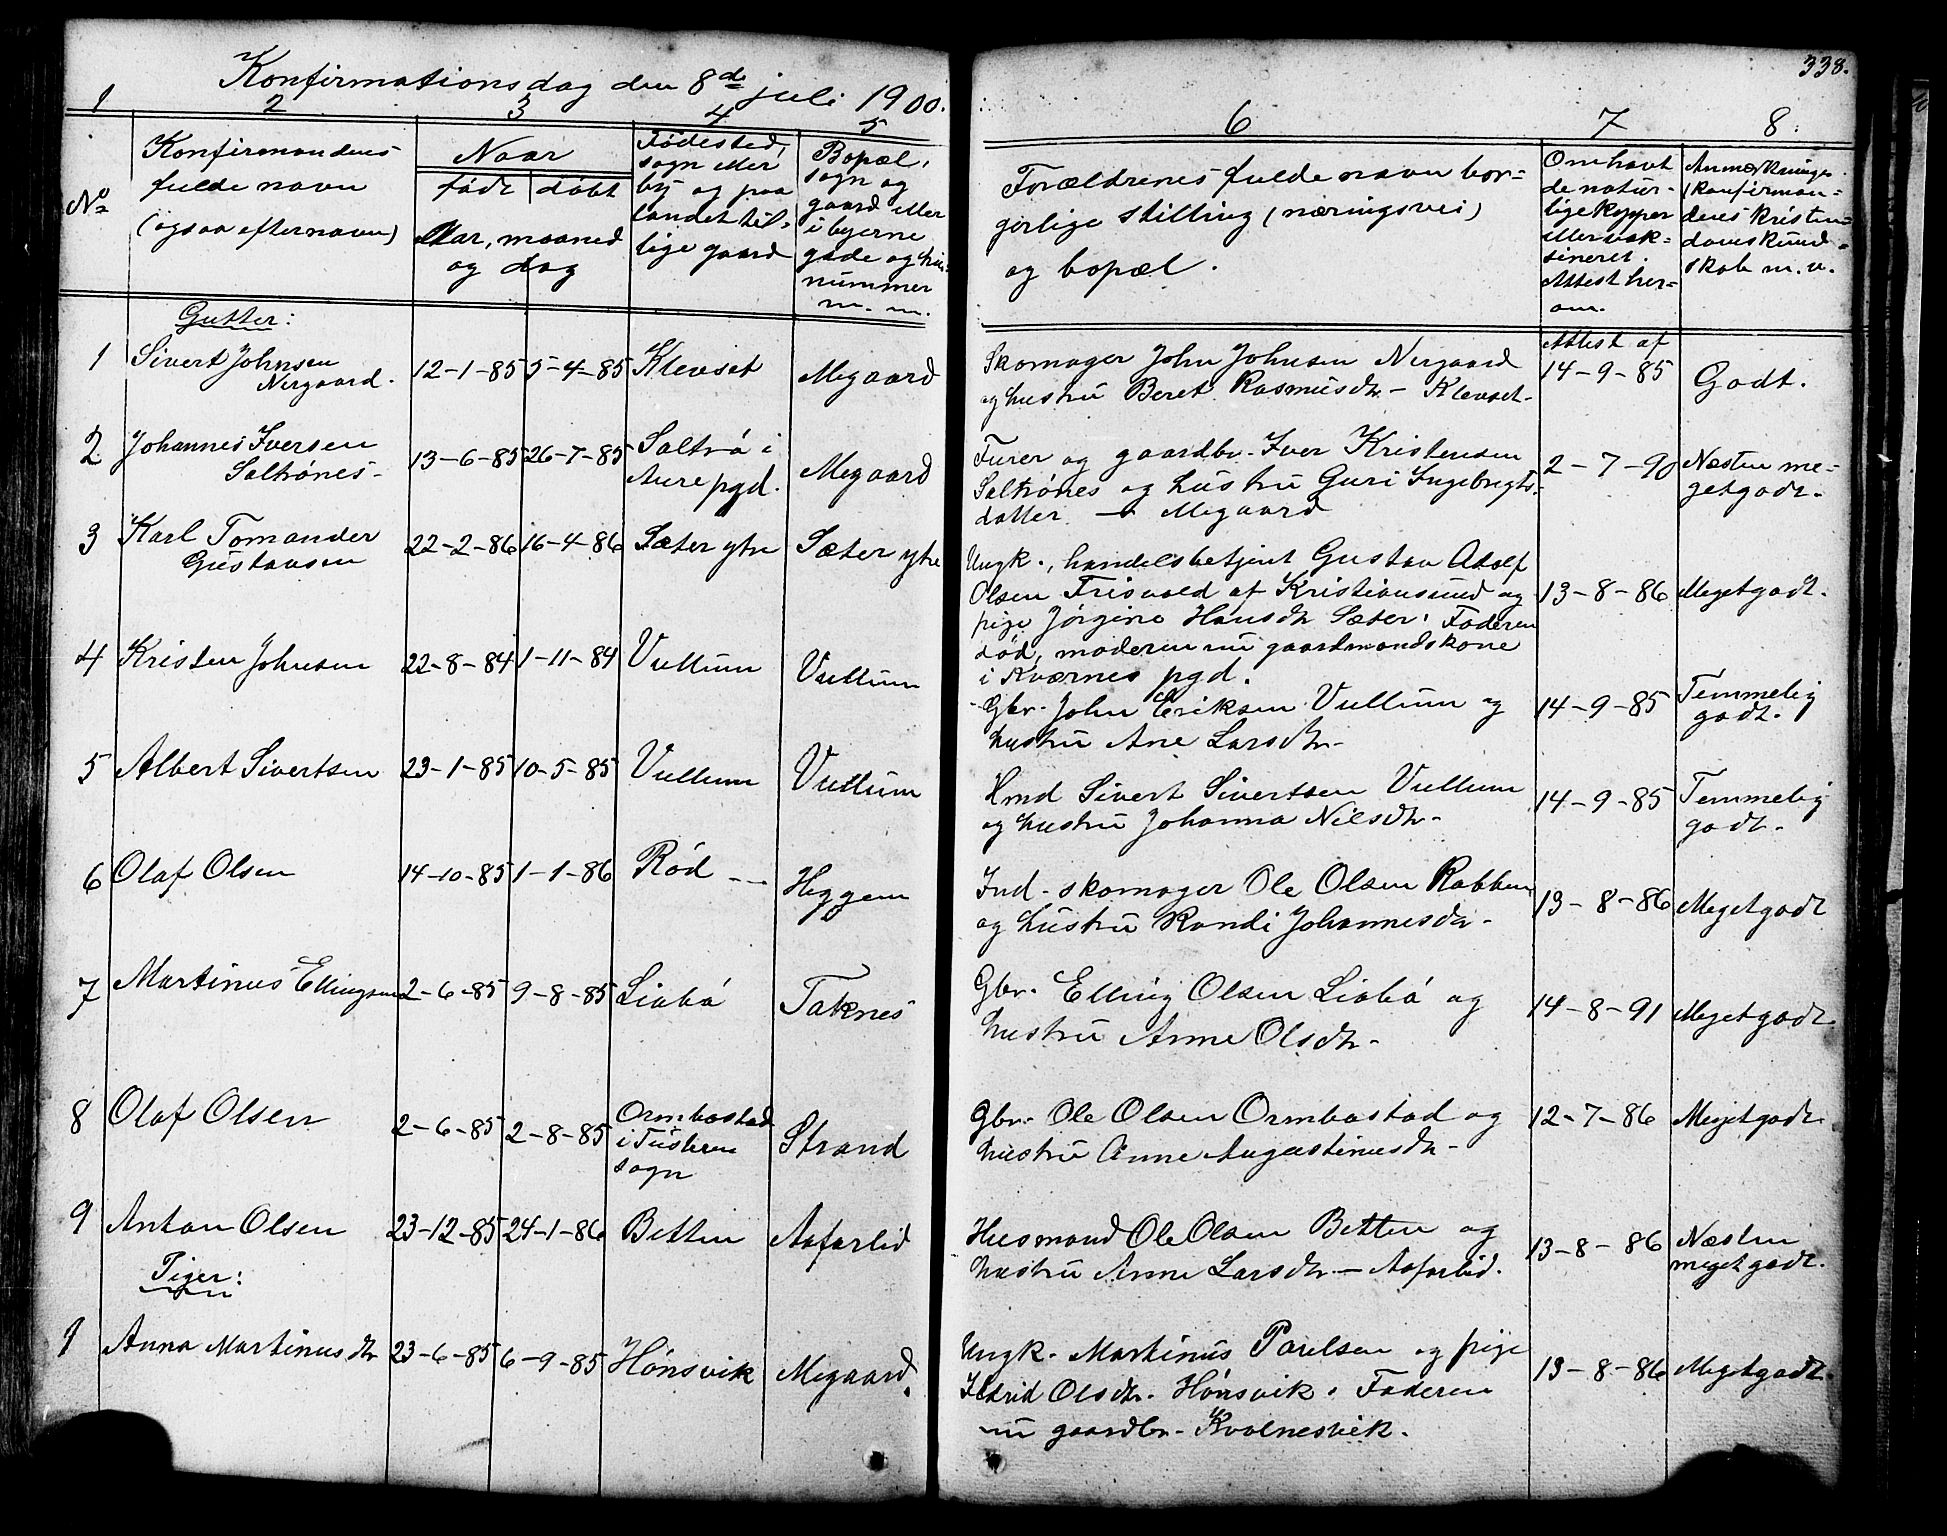 338.
Konfirmationsdag den 8de juli 1900.
1 2 3 4 5 6 7 8:
No
Konfirmandens
fulde navn
(ogsaa efternavn)
Naar
født døbt
Aar, maaned
og dag
Fødested,
sogn eller
by og paa
landet til-
lige gaard
Bopæl,
sogn og
gaard eller
i byerne
gade og hus-
nummer
m. m.
Forældrenes fulde navn bor-
gerlige stilling (næringsvei)
og bopæl.
Om havt
de natur-
lige kopper
eller vak-
sineret.
Attest her-
om.
Anmærkninger
(konfirman-
dens kristen-
domskund-
skab m. v.
Gutter:
1 Sivert Johnsen
Nergaard.
12-1-85 5-4-85 Klevset Megaard
Skomager John Johnsen Nergaard
og hustru Beret Rasmusdtr. - Klevset-
Attest af
14-9-85
Godt.
2 Johannes Iversen
Saltrønes-
13-6-85 26-7-85
Saltrø i
Aure pgd.
Megaard
Furer og gaardbr. Iver Kristensen
Saltrønes og hustru Guri Ingebrigts-
datter - Megaard
2-7-90
Næsten me-
getgodt.
3 Karl Tomander
Gustavsen
22-2-86 16-4-86 Sæter ytre Sæter ytre
Ungk., handelsbetjent Gustav Adolf
Olsen Frisvold af Kristiansund og
pige Jørgine Hansdtr Sæter. Faderen
død, moderen nu gaardmandskone
i Kværnes pgd.
13-8-86 Megetgodt.
4 Kristen Johnsen 22-8-84 1-11-84 Vullum Vullum
Gbr. John Eriksen Vullum og
hustru Ane Larsdtr-
14-9-85
Temmelig
godt.
5 Albert Sivertsen 23-1-85 10-5-85 Vullum Vullum
Hmd Sivert Sivertsen Vullum
og hustru Johanna Nilsdtr-
14-9-85
Temmelig
godt.
6 Olaf Olsen 14-10-85 1-1-86 Rød Heggem
Ind- skomager Ole Olsen Rabben
og hustru Randi Johannesdtr-
13-8-86 Megetgodt
7 Martinus Ellingsen 2-6-85 9-8-85 Liabø Taknes
Gbr. Elling Olsen Liabø og
hustru Anne Olsdtr-
14-8-91 Megetgodt.
8 Olaf Olsen 2-6-85 2-8-85
Ormbostad
i Tustern
sogn
Strand
Gbr- Ole Olsen Ormbostad og
hustru Anne Augustinusdtr-
12-7-86 Megetgodt.
9 Anton Olsen 23-12-85 24-1-86 Betten Aafarlid
Husmand Ole Olsen Betten og
hustru Anne Larsdtr. - Aafarlid.
13-8-86
Næsten
megetgodt.
Piger:
1 Anna Martinusdtr 23-6-85 6-9-85 Hønsvik Megaard.
Ungk. Martinus Paulsen og pige
Ildrid Olsdtr. Hønsvik. Faderen
nu gaardbr- Kvalnesvik.
13-8-86 Megetgodt.